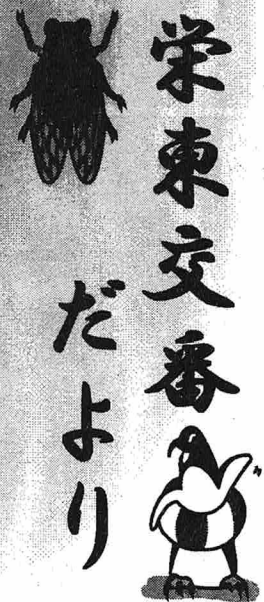 栄東交番
だより